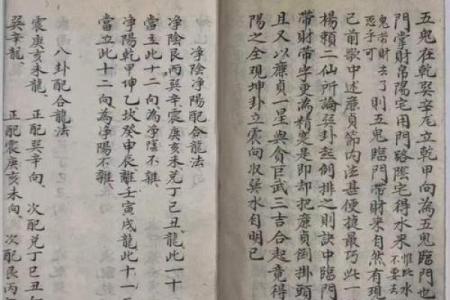 五鬼在乾巽安龙立乾甲向為五鬼臨門也
門掌財帛陽宅用門路陰宅得水來惟此水不要去
鬼若財去了恐乎可則五鬼臨門帶財來自然有現
已前歌中述廉貞篇内法甚便捷最巧此一
楊賴二仙所論巽卦起例排之則訣中臨門
帶財帶字更為精是即却把廉貞倒掛頭
且又以廉貞一星與貪巨武三吉合起竟得
陽之全現坤卦立震向收巽水自明已
淨陰淨陽配合龍法
淨陰艮丙巽辛震庚亥未兌丁巳丑龍此一十
當立此十二向為淨陰不雜
淨陽乾甲坤乙坎癸申辰離壬寅戌龍此十一
當立此十二向為淨陽不雜
八卦配合龍法
震庚亥未龍 正配巽辛向 次配兌丁巳丑
巽辛龍 正配震庚亥未向 次配艮丙